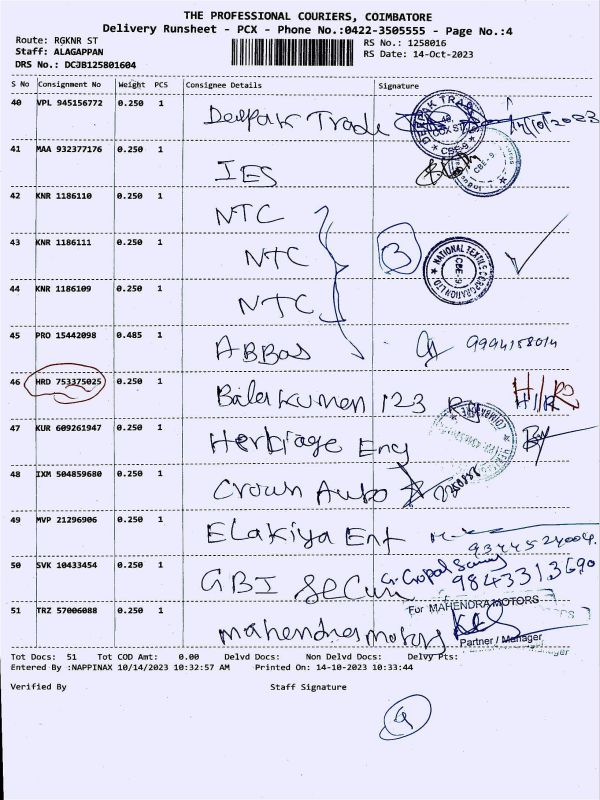 THE PROFESSIONAL COURIERS, COIMBATORE
Delivery Runsheet - PCX - Phone No.:0422-3505555 - Page No.:4
Route: RGKNR ST
RS No.: 1258016
Staff: ALAGAPPAN
RS Date: 14-Oct-2023
DRS No.: DCJB125801604
S No Consignment No Weight PCS Consignee Details Signature
40 VPL 945156772 0.250 1 Deepak Trade DEEPAK TRAD 14/10/2023
41 MAA 932377176 0.250 1 IES CBE-9
42 KNR 1186110 0.250 1 NTC
43 KNR 1186111 0.250 1 NTC 3 NATIONAL TEXTILE CORPORATION LTD CBE-9
44 KNR 1186109 0.250 1 NTC
45 PRO 15442098 0.485 1 ABBas 9994158014
46 HRD 753375025 0.250 1 Balakumen 123 H/R
47 KUR 609261947 0.250 1 Heritage Eng
48 IXM 504859680 0.250 1 Crown Auto
49 MVP 21296906 0.250 1 Elakiya Ent
50 SVK 10433454 0.250 1 GBI Secun G. Gopal Samy 9843313690
51 TRZ 57006088 0.250 1 mahendra motors For MAHENDRA MOTORS
Partner / Manager
Tot Docs: 51 Tot COD Amt: 0.00 Delvd Docs: Non Delvd Docs: Delvy Pts:
Entered By :NAPPINAX 10/14/2023 10:32:57 AM Printed On: 14-10-2023 10:33:44
Verified By Staff Signature